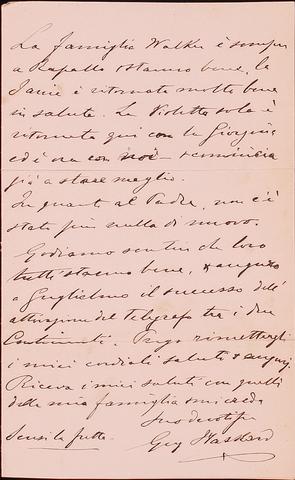 La famiglia Walker è sempre
a Rapallo e stanno bene, la
Janie è ritornata molto bene
in salute. La Violetta sola è
ritornata qui con la Giorgina
ed è ora con noi e comincia
già a stare meglio.
In quanto al Padre, non c'è
stato più nulla di nuovo.
Godiamo sentire che loro
tutti stanno bene, & auguro
a Guglielmo il successo dell'
attivazione del telegrafo tra i due
Continenti. Prego rimettergli
i miei cordiali saluti & augurj
Riceva i miei saluti con quelli
della mia famiglia e mi creda
Suo devotissº
Scusi la fretta.